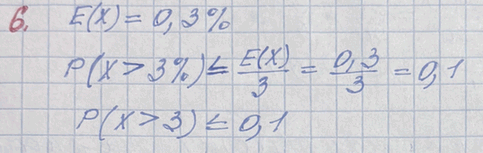 6. E(X) = 0,3%
P(X > 3%) ≤ E(X)/3 = 0,3/3 = 0,1
P(X > 3) ≤ 0,1